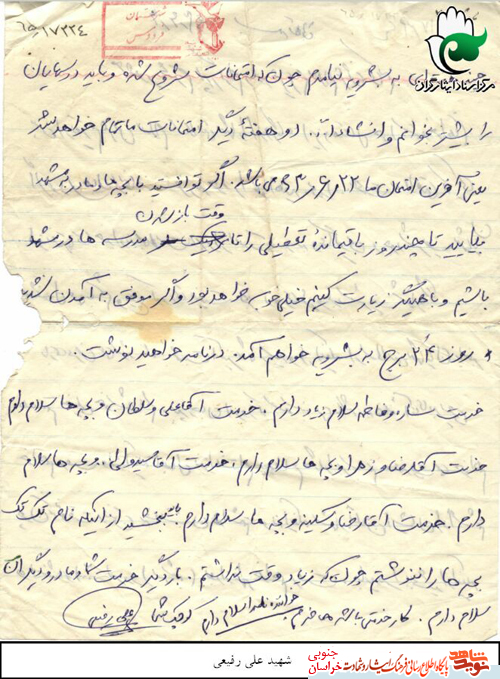 ۶۵/۱۷۳۳۴
مرکز اسناد ایثارگران
به بشرویه نیامدم چون که امتحانات شروع شده و باید درسهایمان
را بیشتر بخوانم و انشاءالله دو هفته دیگر امتحانات ما تمام خواهد شد
یعنی آخرین امتحان ما ۲۲ می باشد. اگر توانستید با بچه ها و مادر به مشهد
بیایید تا چند روز باقیمانده تعطیلی را تا مدرسه ها در مشهد
وقت باز شدن
باشیم و با همدیگر زیارت کنیم خیلی خوب خواهد بود و اگر موفق به آمدن نشدید
روز ۲۴ برج به بشرویه خواهم آمد. در نامه خواهید نوشت.
خدمت و فاطمه سلام زیاد دارم. خدمت آقا علی و سلطان و بچه ها سلام دارم
خدمت آقا رضا و زهرا و بچه ها سلام دارم. خدمت آقا و بچه ها سلام
دارم. خدمت آقا رضا و سکینه و بچه ها سلام دارم ببخشید از اینکه نام تک تک
بچه ها را ننوشتم چون که زیاد وقت نداشتم. بار دیگر خدمت شما و مادر و دیگران
سلام دارم. کوچک شما علی رفیعی
خواننده نامه را سلام دارم
شهید علی رفیعی
نوید شاهد
خراسان جنوبی
پایگاه اطلاع رسانی فرهنگ ایثار و شهادت